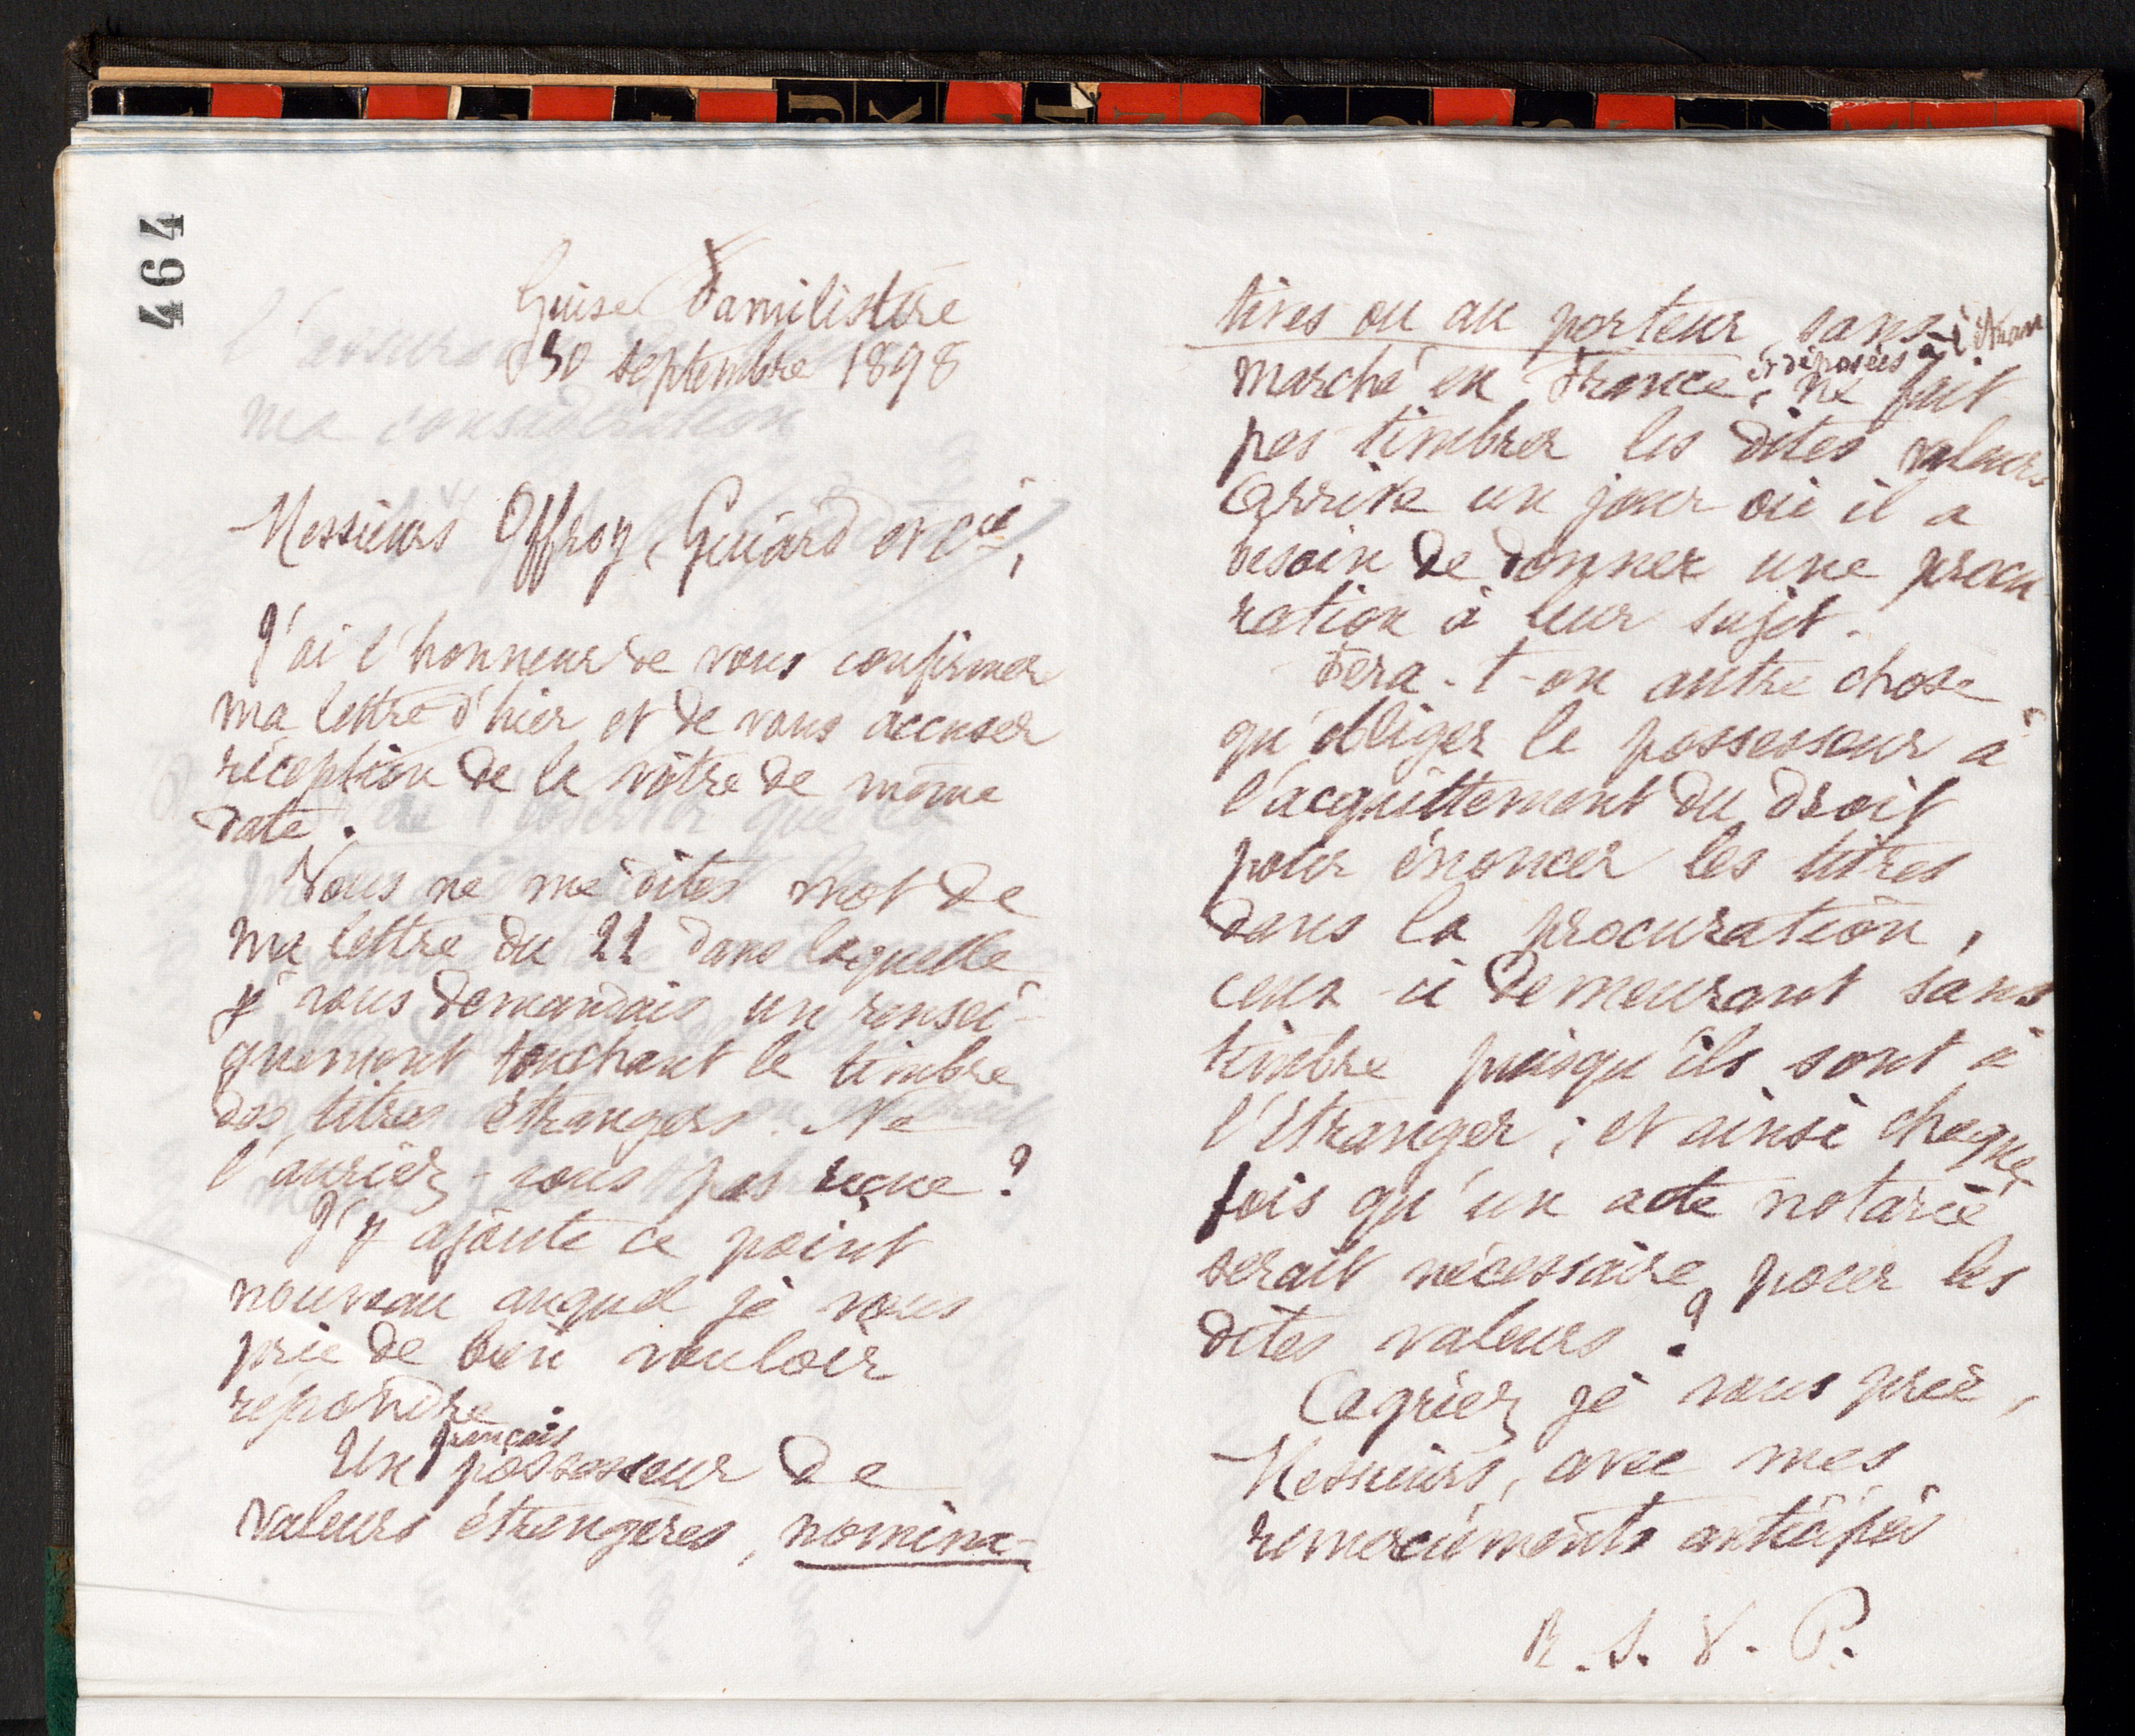 464
Guise Familistère
30 septembre 1898
Messieurs Offroy, Guiard et Cie,
J'ai l'honneur de vous confirmer
ma lettre d'hier et de vous accuser
réception de la vôtre de même
date.
Vous ne me dites mot de
ma lettre du 22 dans laquelle
je vous demandais un rensei-
gnement touchant le timbre
des titres étrangers. Ne
l'auriez-vous pas reçue ?
J'y ajoute ce point
nouveau auquel je vous
prie de bien vouloir
répondre.
Un français possesseur de
valeurs étrangères, nomina-
tives ou au porteur, sans
marché en France, et déposées à l'étran
ne fait
pas timbrer les dites valeurs
Arrive un jour où il a
besoin de donner une procu
ration à leur sujet.
Fera-t-on autre chose
qu'obliger le possesseur à
l'acquittement du droit
pour énoncer les titres
dans la procuration,
ceux-ci demeurant sans
timbre puisqu'ils sont à
l'étranger ; et ainsi chaque
fois qu'un acte notarié
serait nécessaire pour les
dites valeurs ?
Agréez je vous prie,
Messieurs, avec mes
remerciements anticipés
R. S. V. P.
J K L M N O P Q R S T U V